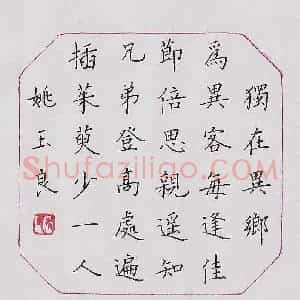 獨在異鄉
爲異客每逢佳
節倍思親遥知
兄弟登高處遍
插茱萸少一人
姚玉良
Shufaziliao.com